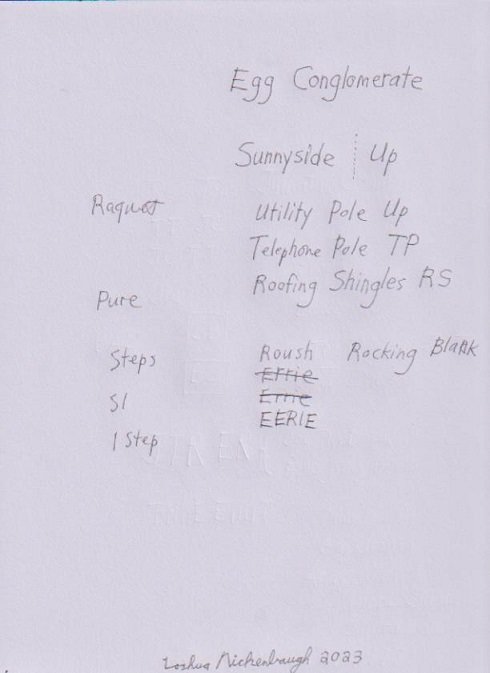 Egg Conglomerate
Sunnyside Up
Raquet
Utility Pole Up
Telephone Pole TP
Roofing Shingles RS
Pure
Steps
Roush Rocking Blank
Effie
SI
Ernie
EERIE
1 Step
Joshua Nichenbaugh 2023